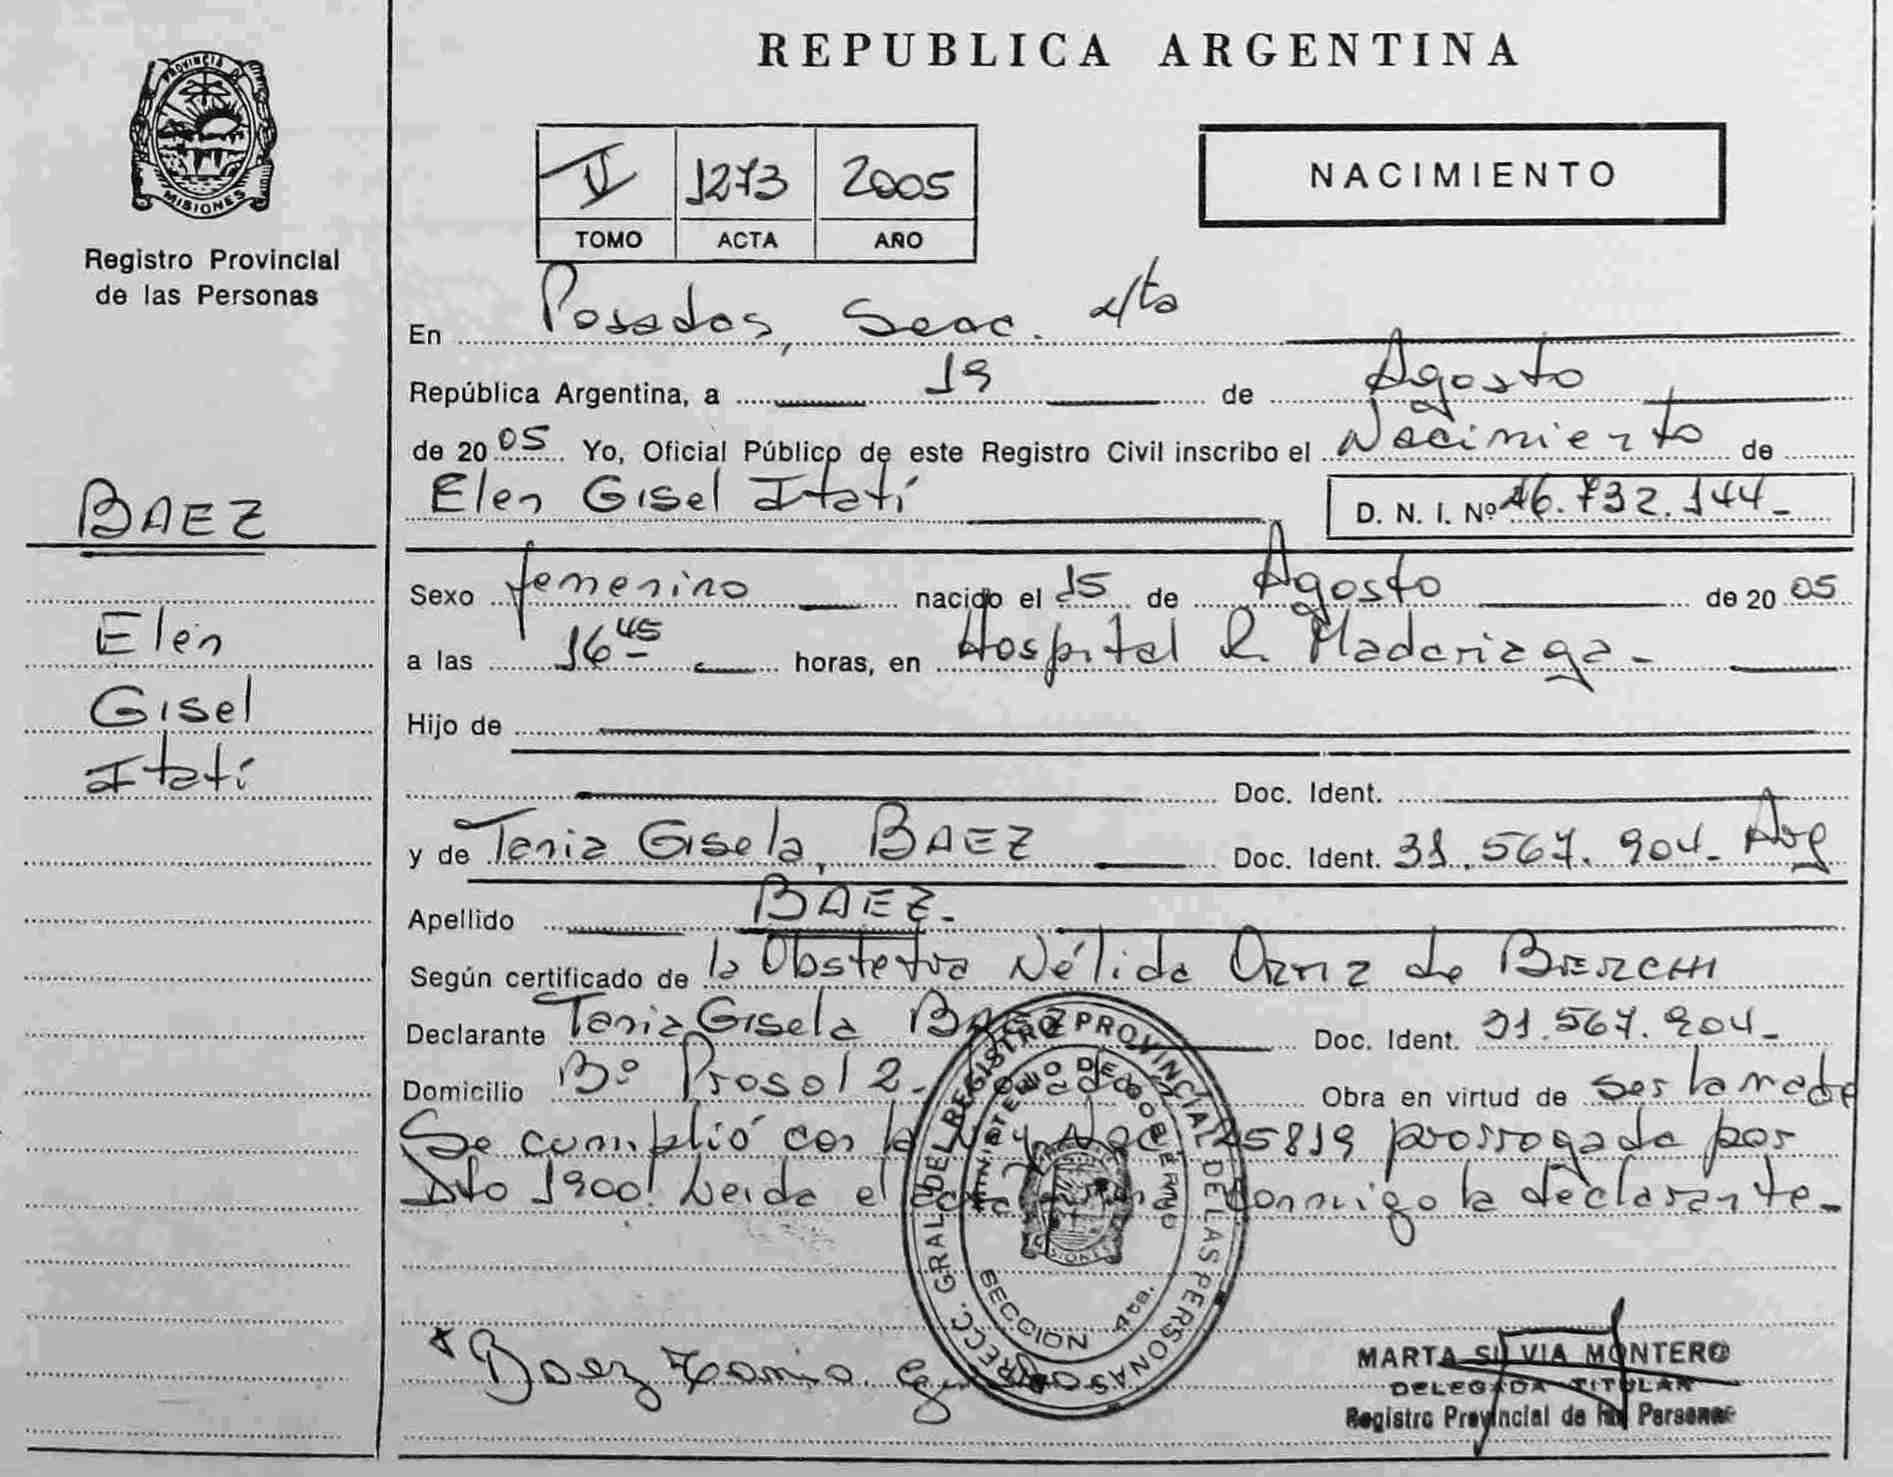 REPUBLICA ARGENTINA
PROVINCIA DE
MISIONES
Registro Provincial
de las Personas
II 1273 2005
TOMO ACTA AÑO
NACIMIENTO
En Posadas, Secc. 4/ta
República Argentina, a 19 de Agosto
de 2005 Yo, Oficial Público de este Registro Civil inscribo el Nacimiento de
Elen Gisel Itatí D. N. I. Nº 46.732.144-
BAEZ
Elen
Gisel
Itatí
Sexo femenino nacido el 15 de Agosto de 2005
a las 16 45 horas, en Hospital R. Madariaga-
Hijo de
Doc. Ident.
y de Tania Gisela, BAEZ Doc. Ident. 31.567.904- Arg
Apellido BAEZ-
Según certificado de la Obstetra Nélida de
Declarante Tania Gisela BAEZ Doc. Ident. 31.567.904-
Domicilio Bº Prosol 2- Obra en virtud de ser la madre
Se cumplió con la Ley Nac. 25819 prorrogada por
Dto 1900! Leída el acta conmigo la declarante-
DIRECC. GRAL. DEL REGISTRO PROVINCIAL DE LAS PERSONAS
MINISTERIO DE GOBIERNO
MISIONES
SECCION 4ta.
x Baez Tania
MARTA SILVIA MONTERO
DELEGADA TITULAR
Registro Provincial de las Personas